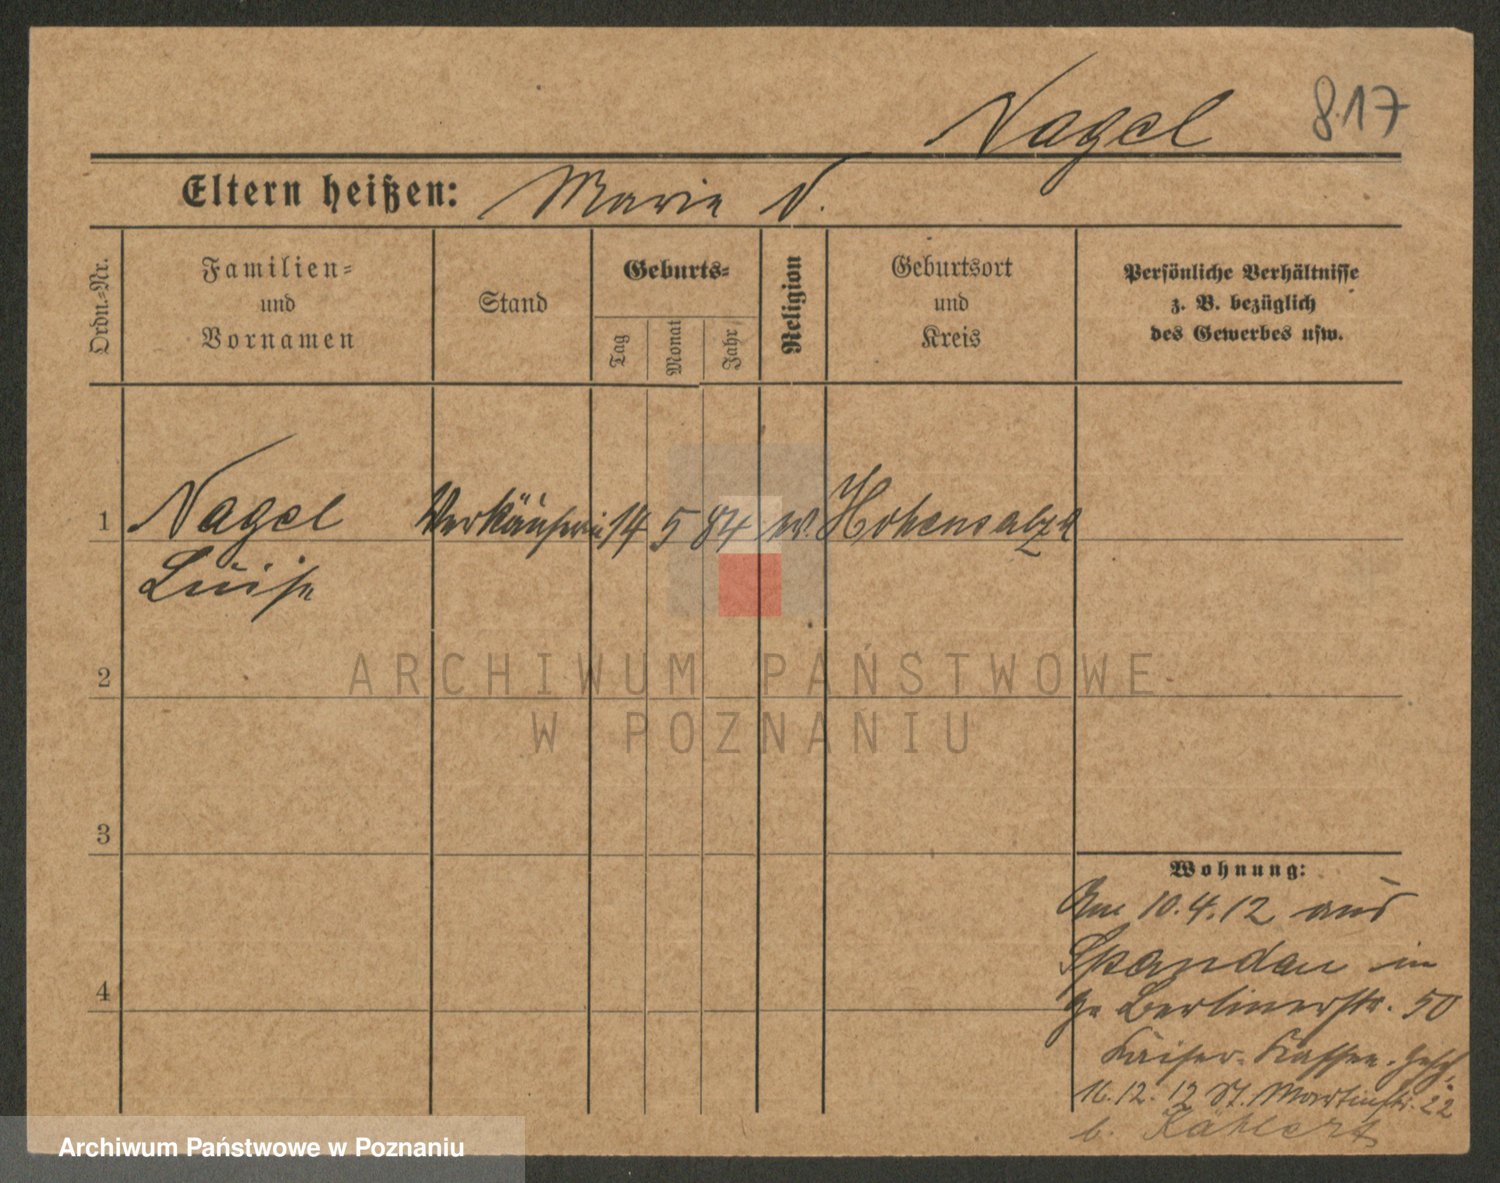 Nagel 817
Eltern heißen: Marie N.
Ordn.-Nr.
Familien-
und
Vornamen
Stand
Geburts-
Tag
Monat
Jahr
Religion
Geburtsort
und
Kreis
Persönliche Verhältnisse
z. B. bezüglich
des Gewerbes usw.
1 Nagel Verkäuferin 14 5 84 ev. Hohensalza
Luise
2
3
4
Wohnung:
Am 10.4.12 aus
Spandau in
Berlinerstr. 50
Kaiser-Kaffee-Gesch.
16.12.12 St. Martinstr. 22
b. Kahlert
ARCHIWUM PAŃSTWOWE
W POZNANIU
Archiwum Państwowe w Poznaniu